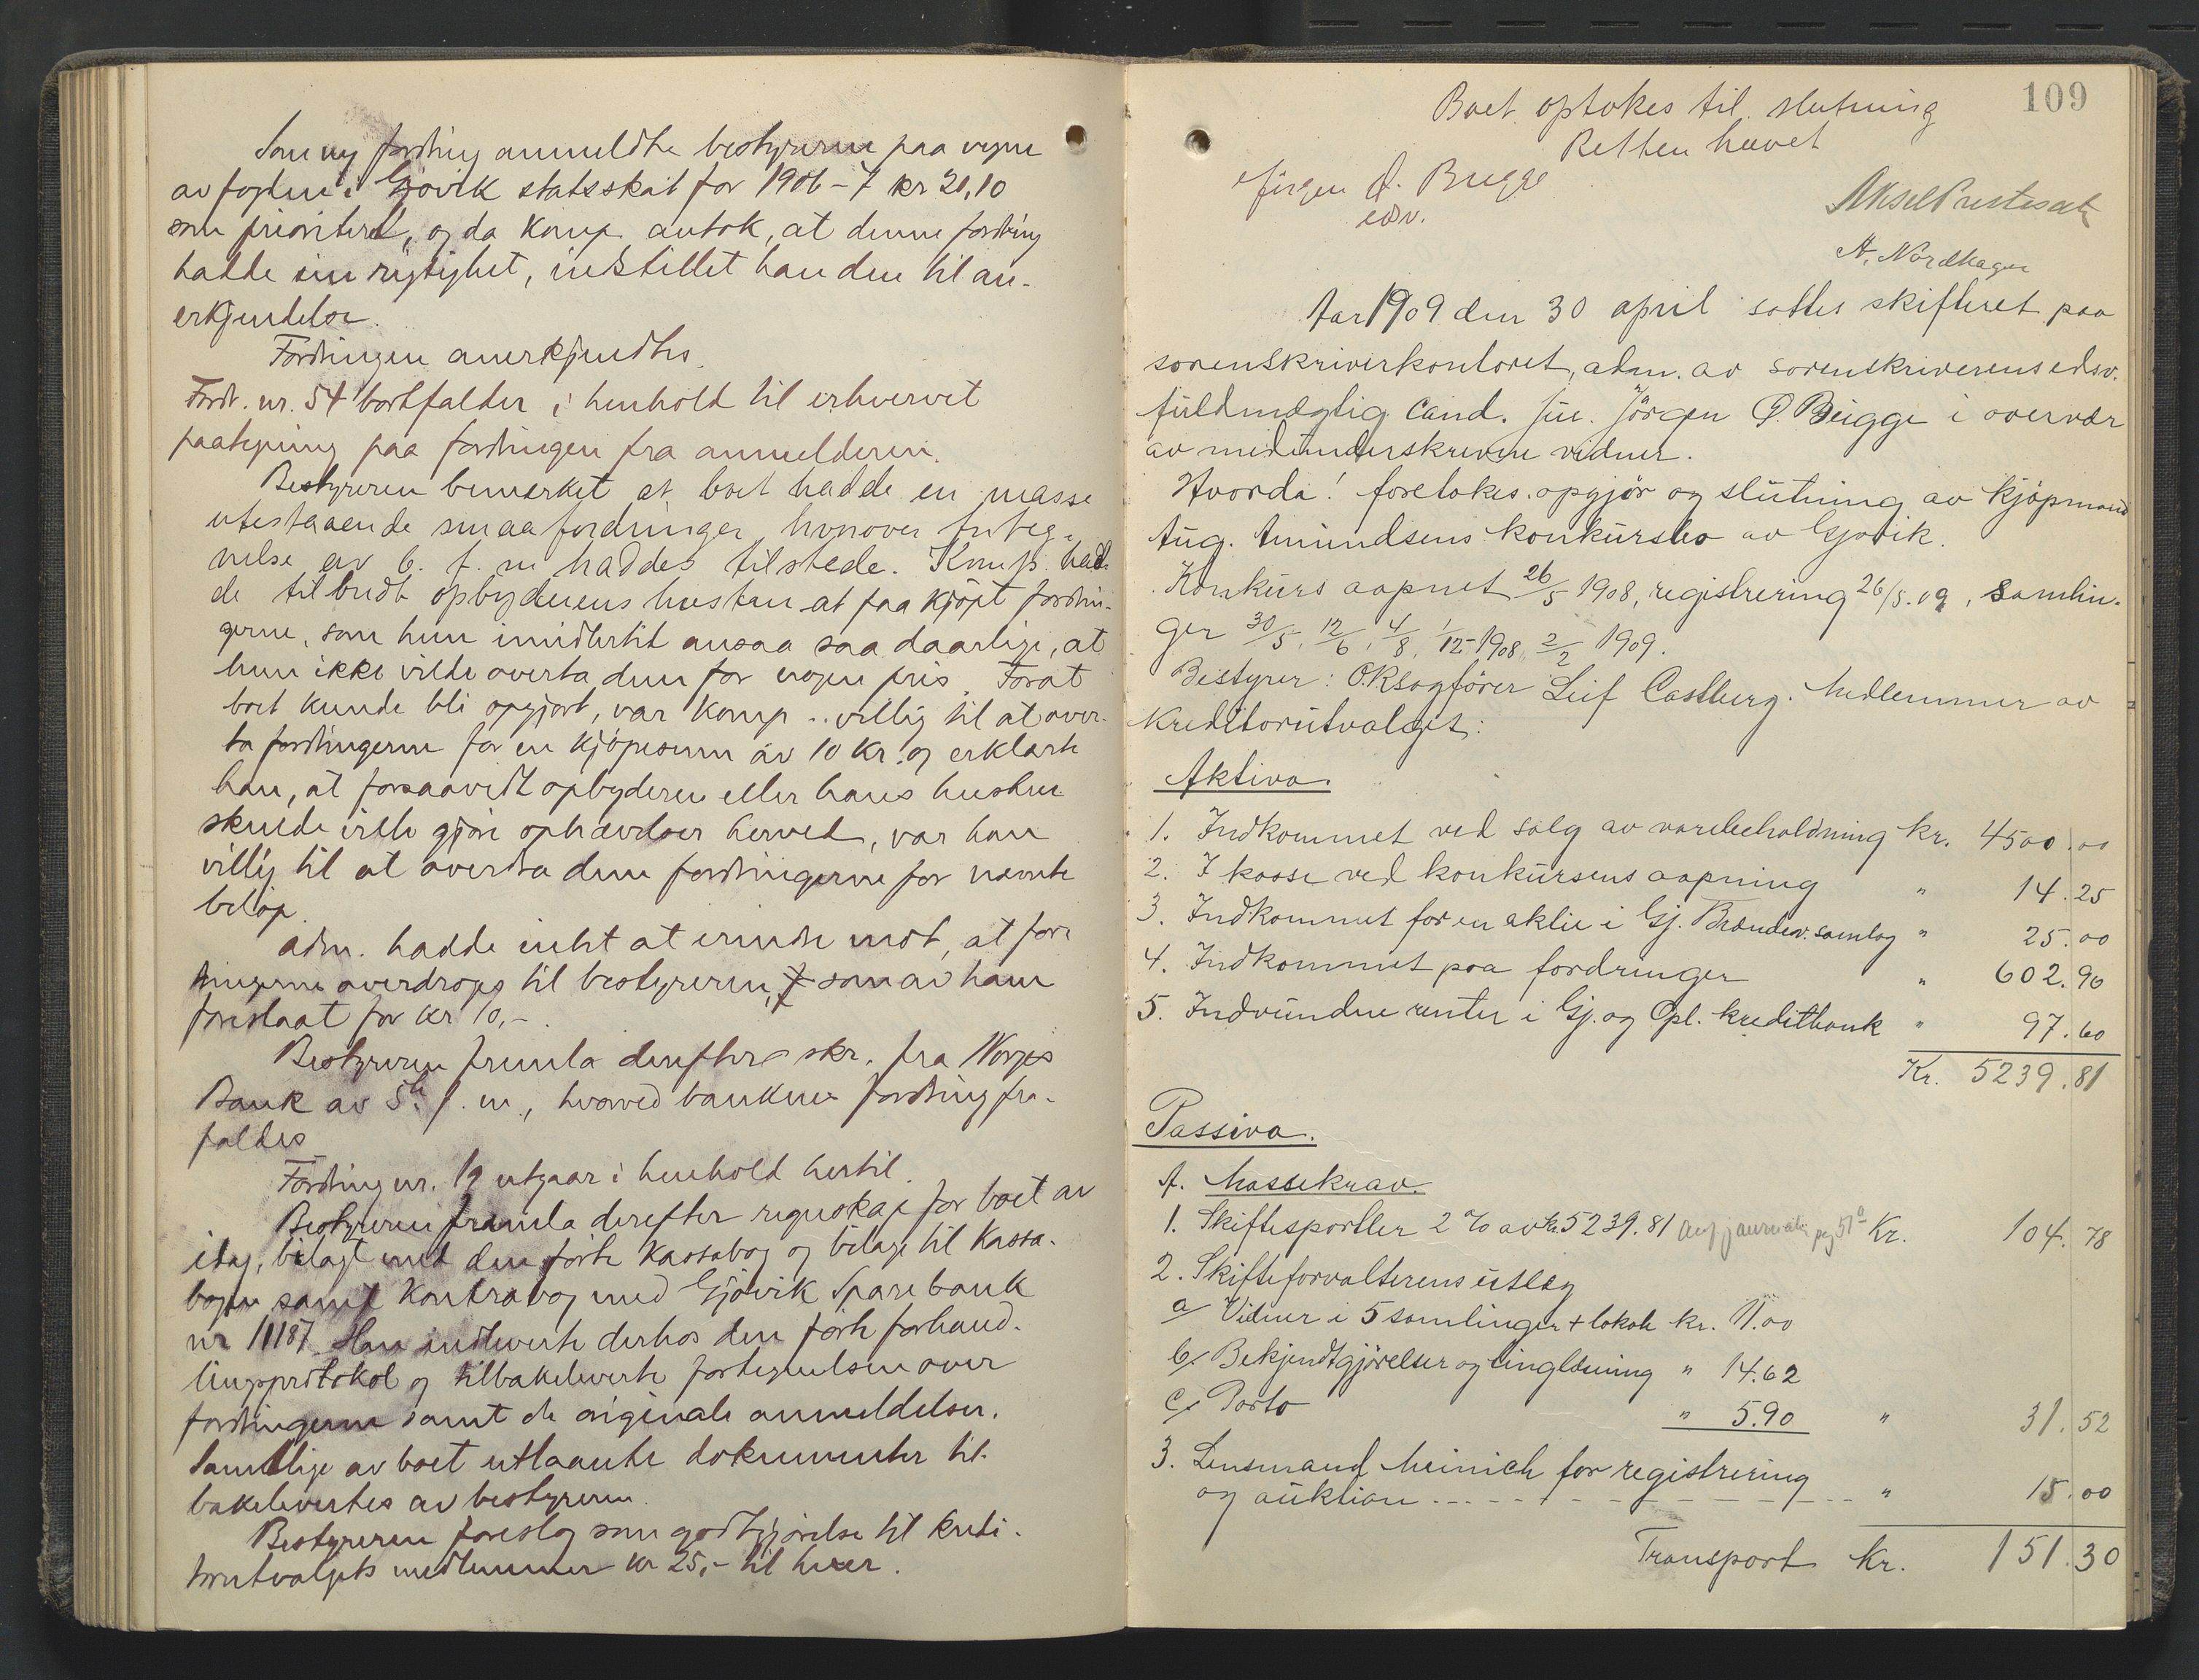 Som ny fordring anmeldte bestyreren paa vegne
av fogden i Gjøvik statsskat for 1906-7 kr 21,10
som prioritert, og da komp. antok, at denne fordring
hadde sin rigtighet, indstillet han den til an-
erkjendelse.
Fordringen anerkjendtes.
Fordr. nr. 54 bortfalder i henhold til erhvervet
paategning paa fordringen fra anmelderen.
Bestyreren bemerket at boet hadde en masse
utestaaende smaafordringer hvorover forteg-
nelse av 6. f. m haddes tilstede. Komp. had-
de tilbudt opbyderens hustru at faa kjøpt fordrin-
gerne, som hun imidlertid ansaa saa daarlige, at
hun ikke vilde overta dem for nogen pris. Forat
boet kunde bli opgjort, var komp. villig til at over-
ta fordringerne for en kjøpesum av 10 kr. og erklærte
han, at forsaavidt opbyderen eller hans hustru
skulde ville gjøre ophævelser herved, var han
villig til at overdra dem fordringerne for nævnte
beløp.
Adm. hadde intet at erindre mot, at for-
dringerne overdroges til bestyreren, som av ham
foreslaat for kr 10,-.
Bestyreren fremla derefter skr. fra Norges
Bank av 5te f. m., hvorved bankens fordring fra-
faldes
Fordring nr. 19 utgaar i henhold hertil.
Bestyreren fremla derefter regnskap for boet av
idag, bilagt med den førte kassabog og bilage til kassa-
bogen samt kontrabog med Gjøvik Sparebank
nr 11187. Han indleverte derhos den førte forhand-
lingsprotokol og tilbakeleverte fortegnelsen over
fordringerne samt de originale anmeldelser.
Samtlige av boet utlaante dokumenter til-
bakelevertes av bestyreren.
Bestyreren foreslog som godtgjørelse til kredi-
torutvalgets medlemmer kr 25,- til hver.
109
Boet optokes til slutning
Retten hævet
Jørgen P. Bugge
edsv.
Aksel Prestesæter
N. Nordhagen
Aar 1909 den 30 april sattes skifteret paa
sorenskriverkontoret, adm. av sorenskriverens edsv.
fuldmægtig cand. jur. Jörgen P. Bugge i overvær
av medunderskrevne vidner.
Hvorda! foretokes opgjör og slutning av kjöpmand
Aug. Amundsens konkursbo av Gjøvik.
Konkurs aapnet 26/5 1908, registrering 26/5.09, samlin-
ger 30/5, 12/6, 4/8, 1/12-1908, 2/2 1909.
Bestyrer: O.Rsagförer Leif Castberg. Medlemmer av
kreditorutvalget:
Aktiva.
1. Indkommet ved salg av varebeholdning kr. 4500.00
2. I kasse ved konkursens aapning " 14.25
3. Indkommet for en aktie i Gj. Brændev. samlag " 25.00
4. Indkommet paa fordringer " 602.96
5. Indvundne renter i Gj. og Opl. kreditbank " 97.60
Kr. 5239.81
Passiva.
A. Massekrav.
1. Skiftesportler 2 % av kr. 5239.81 Kr. 104.78
2. Skifteforvalterens utlæg
a/ Vidner i 5 samlinger + lokale kr. 11.00
b/ Bekjendtgjörelser og tinglæsning " 14.62
c/ Porto " 5.90 " 31.52
3. Lensmand Meinich for registrering
og auktion " 15.00
Transport Kr. 151.30